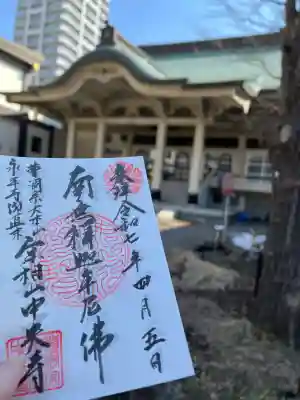 奉拝 令和七年四月五日
南無釈迦牟尼佛
曹洞宗大本山
永平寺御直末
宗村山中央寺